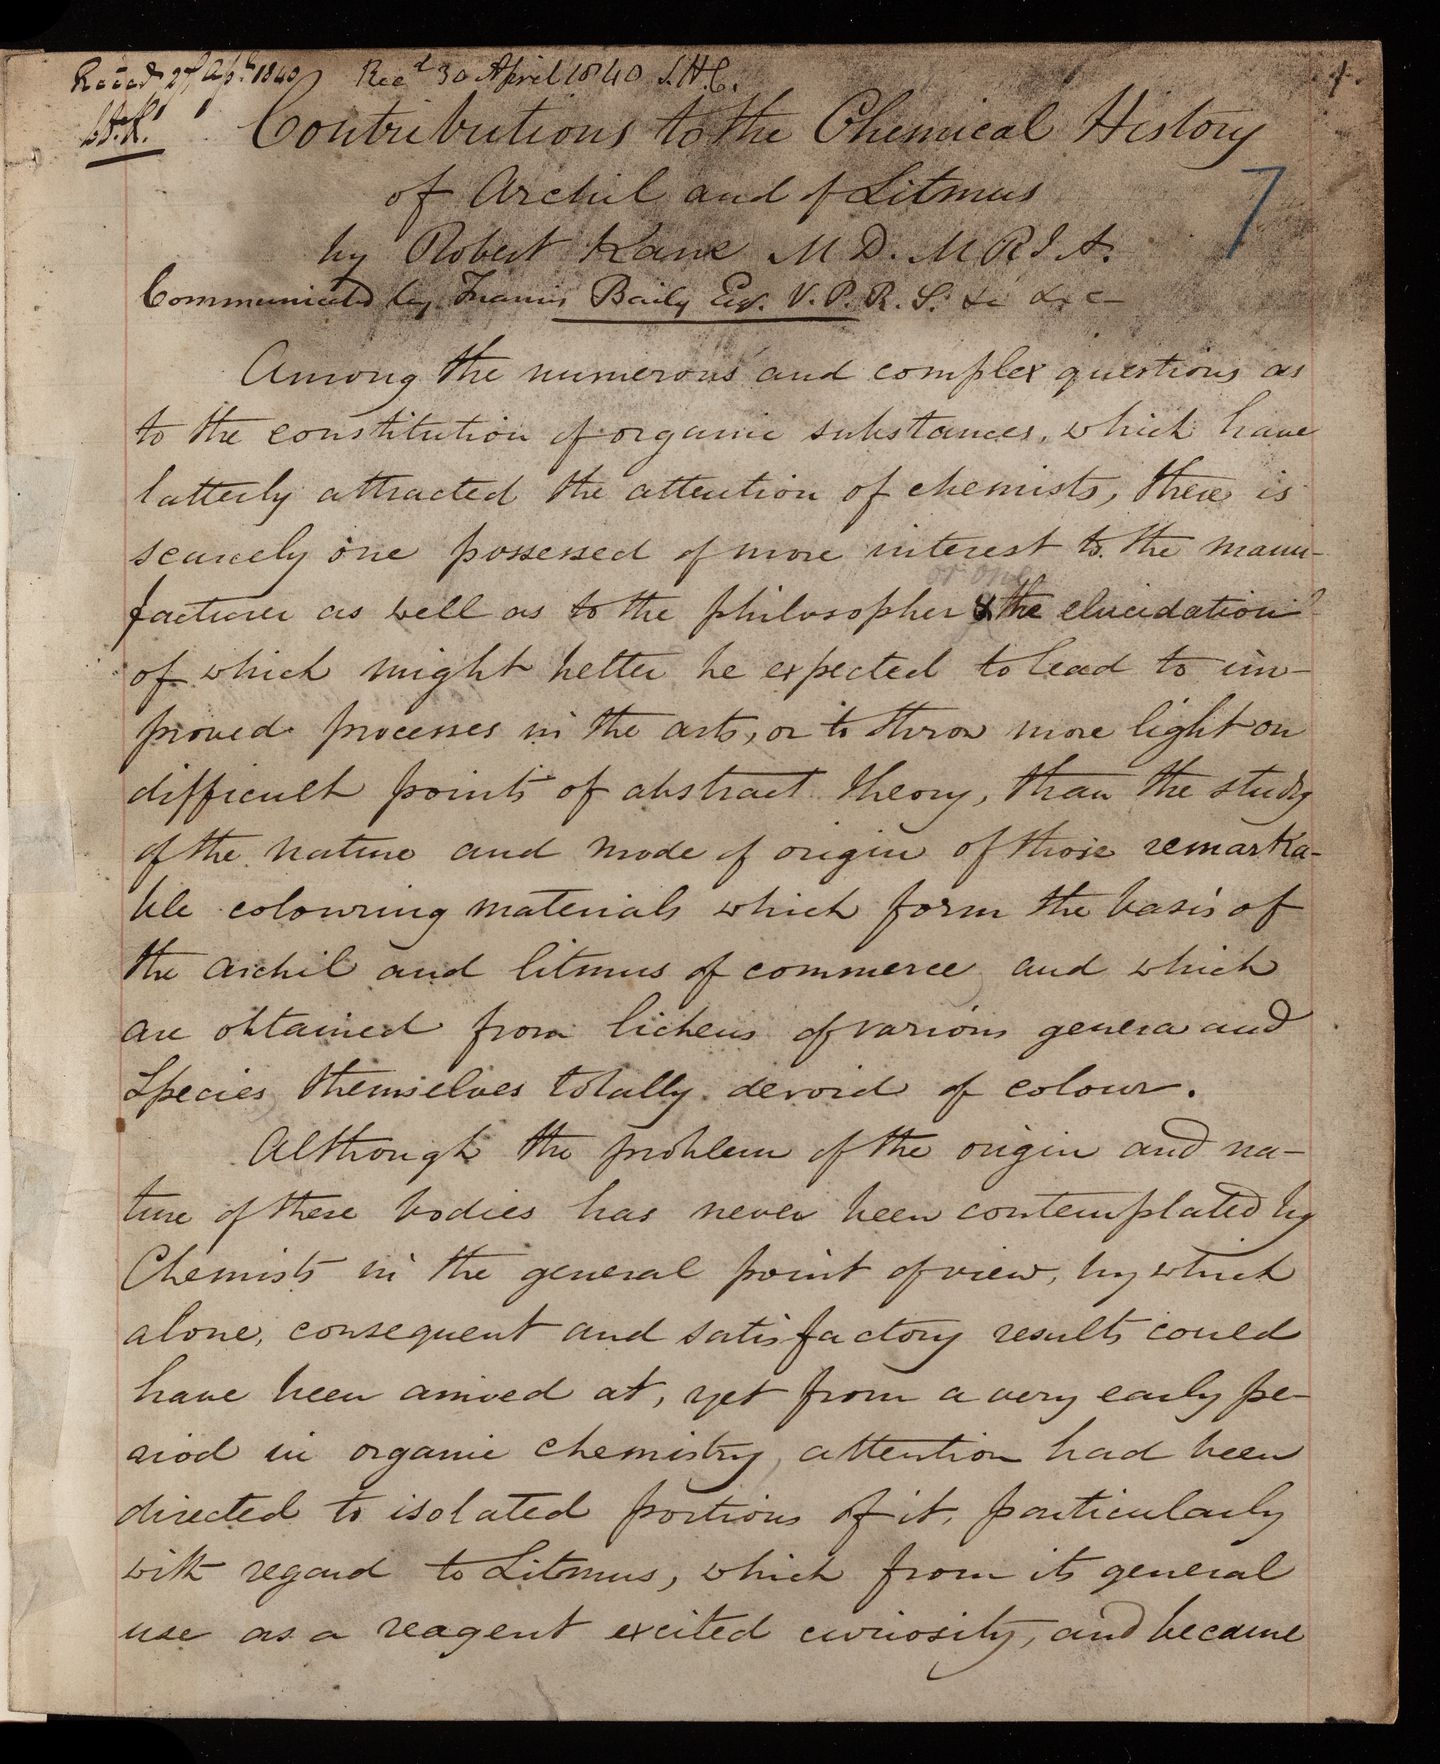 Recd 27 Apl. 1840 Recd 30 April 1840 S.H.C.
1.
Contributions to the Chemical History
7
of Archil and of Litmus
by Robert Kane M D. M R I A.
Communicated by Francis Baily Esq. V. P. R. S. &c &c
Among the numerous and complex questions as
to the constitution of organic substances, which have
latterly attracted the attention of chemists, there is
scarcely one possessed of more interest to the manu-
or one
facturer as well as to the philosopher & the elucidation
of which might better be expected to lead to im-
proved processes in the arts, or to throw more light on
difficult points of abstract theory, than the study
of the nature and mode of origin of those remarka-
ble colouring materials which form the basis of
the archil and litmus of commerce and which
are obtained from lichens of various genera and
species, themselves totally devoid of colour.
Although the problem of the origin and na-
ture of these bodies has never been contemplated by
Chemists in the general point of view, by which
alone, consequent and satisfactory results could
have been arrived at, yet from a very early pe-
riod in organic chemistry, attention had been
directed to isolated portions of it, particularly
with regard to Litmus, which from its general
use as a reagent excited curiosity, and became